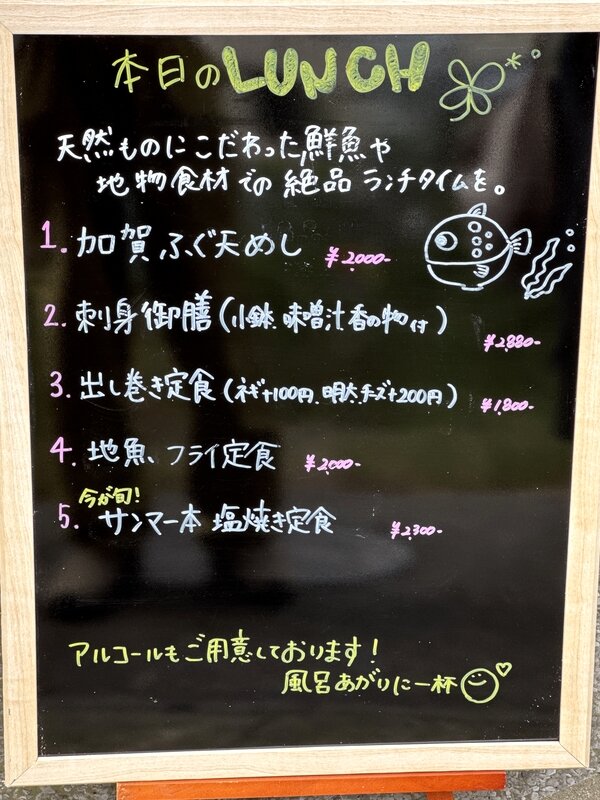 本日のLUNCH
天然ものにこだわった鮮魚や
地物食材での絶品ランチタイムを。
1. 加賀ふぐ天めし ¥2,000-
2. 刺身御膳(小鉢、味噌汁、香の物付) ¥2,880-
3. 出し巻き定食(ネギ+100円、明太、チーズ+200円) ¥1,800-
4. 地魚、フライ定食 ¥2,000-
今が旬!
5. サンマ一本 塩焼き定食 ¥2,300-
アルコールもご用意しております!
風呂あがりに一杯